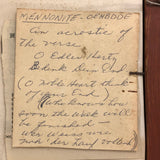 MENNONITE - GEMBODE
An acrostic of
the verse.
O Edles Herz
Bedenk dein End
(O noble Heart think
of your End.
Who knows how
soon the work will
be
Wer Weiss wie
der bald vollend